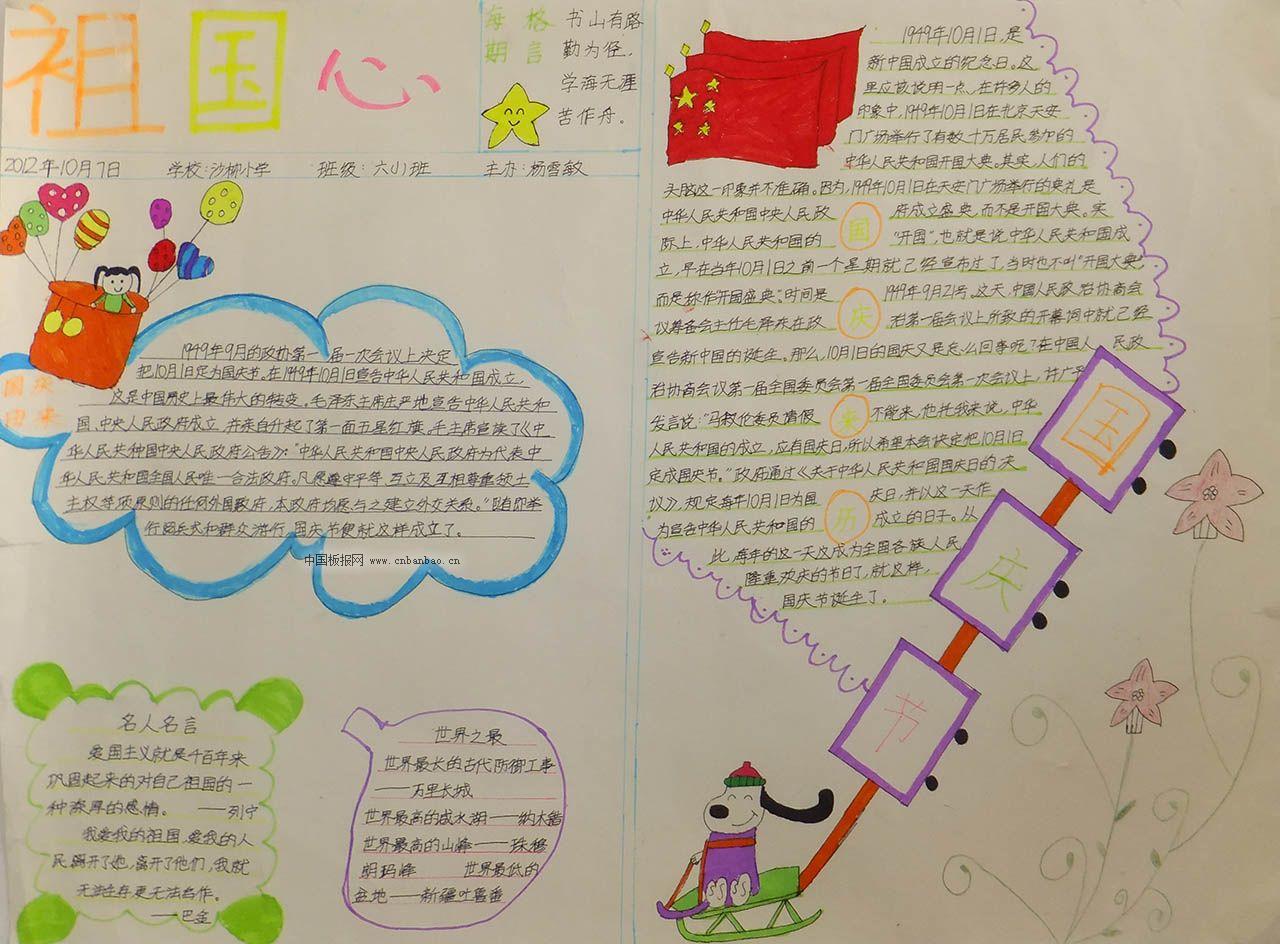 祖国心
每期
格言
书山有路
勤为径，
学海无涯
苦作舟。
2012年10月7日 学校：沙柳小学 班级：六(1)班 主办：杨雪敏
国庆
由来
1949年9月的政协第一届一次会议上决定
把10月1日定为国庆节。在1949年10月1日宣告中华人民共和国成立，
这是中国历史上最伟大的转变。毛泽东主席庄严地宣告中华人民共和
国、中央人民政府成立，并亲自升起了第一面五星红旗。毛主席宣读了《中
华人民共和国中央人民政府公告》："中华人民共和国中央人民政府为代表中
华人民共和国全国人民唯一合法政府。凡愿遵守平等、互立及互相尊重领土
主权等项原则的任何外国政府，本政府均愿与之建立外交关系。"随即举
行阅兵式和群众游行，国庆节便就这样成立了。
中国板报网 www.cnbanbao.cn
名人名言
爱国主义就是千百年来
巩固起来的对自己祖国的一
种深厚的感情。——列宁
我爱我的祖国，爱我的人
民，离开了她，离开了他们，我就
无法生存，更无法写作。
——巴金
世界之最
世界最长的古代防御工事
——万里长城
世界最高的咸水湖——纳木错
世界最高的山峰——珠穆
朗玛峰 世界最低的
盆地——新疆吐鲁番
1949年10月1日，是
新中国成立的纪念日。这
里应该说明一点，在许多人的
印象中，1949年10月1日在北京天安
门广场举行了有数十万居民参加的
中华人民共和国开国大典。其实，人们的
头脑这一印象并不准确。因为，1949年10月1日在天安门广场举行的典礼是
中华人民共和国中央人民政府成立盛典，而不是开国大典。实
际上，中华人民共和国的"开国"，也就是说中华人民共和国成
立，早在当年10月1日之前一个星期就已经宣布过了。当时也不叫"开国大典"，
而是称作"开国盛典"。时间是1949年9月21号。这天，中国人民政治协商会
议筹备会主任毛泽东在政治第一届会议上所致的开幕词中就已经
宣告新中国的诞生。那么，10月1日的国庆又是怎么回事呢？在中国人民政
治协商会议第一届全国委员会第一届全国委员会第一次会议上，许广平
发言说："马叙伦委员请假不能来，他托我来说，中华
人民共和国的成立，应有国庆日，所以希望本会决定把10月1日
定成国庆节。"政府通过《关于中华人民共和国国庆日的决
议》，规定每年10月1日为国庆日，并以这一天作
为宣告中华人民共和国的成立的日子。从
此，每年的这一天这成为全国各族人民
隆重欢庆的节日了，就这样，
国庆节诞生了。
国
庆
来
历
国
庆
节